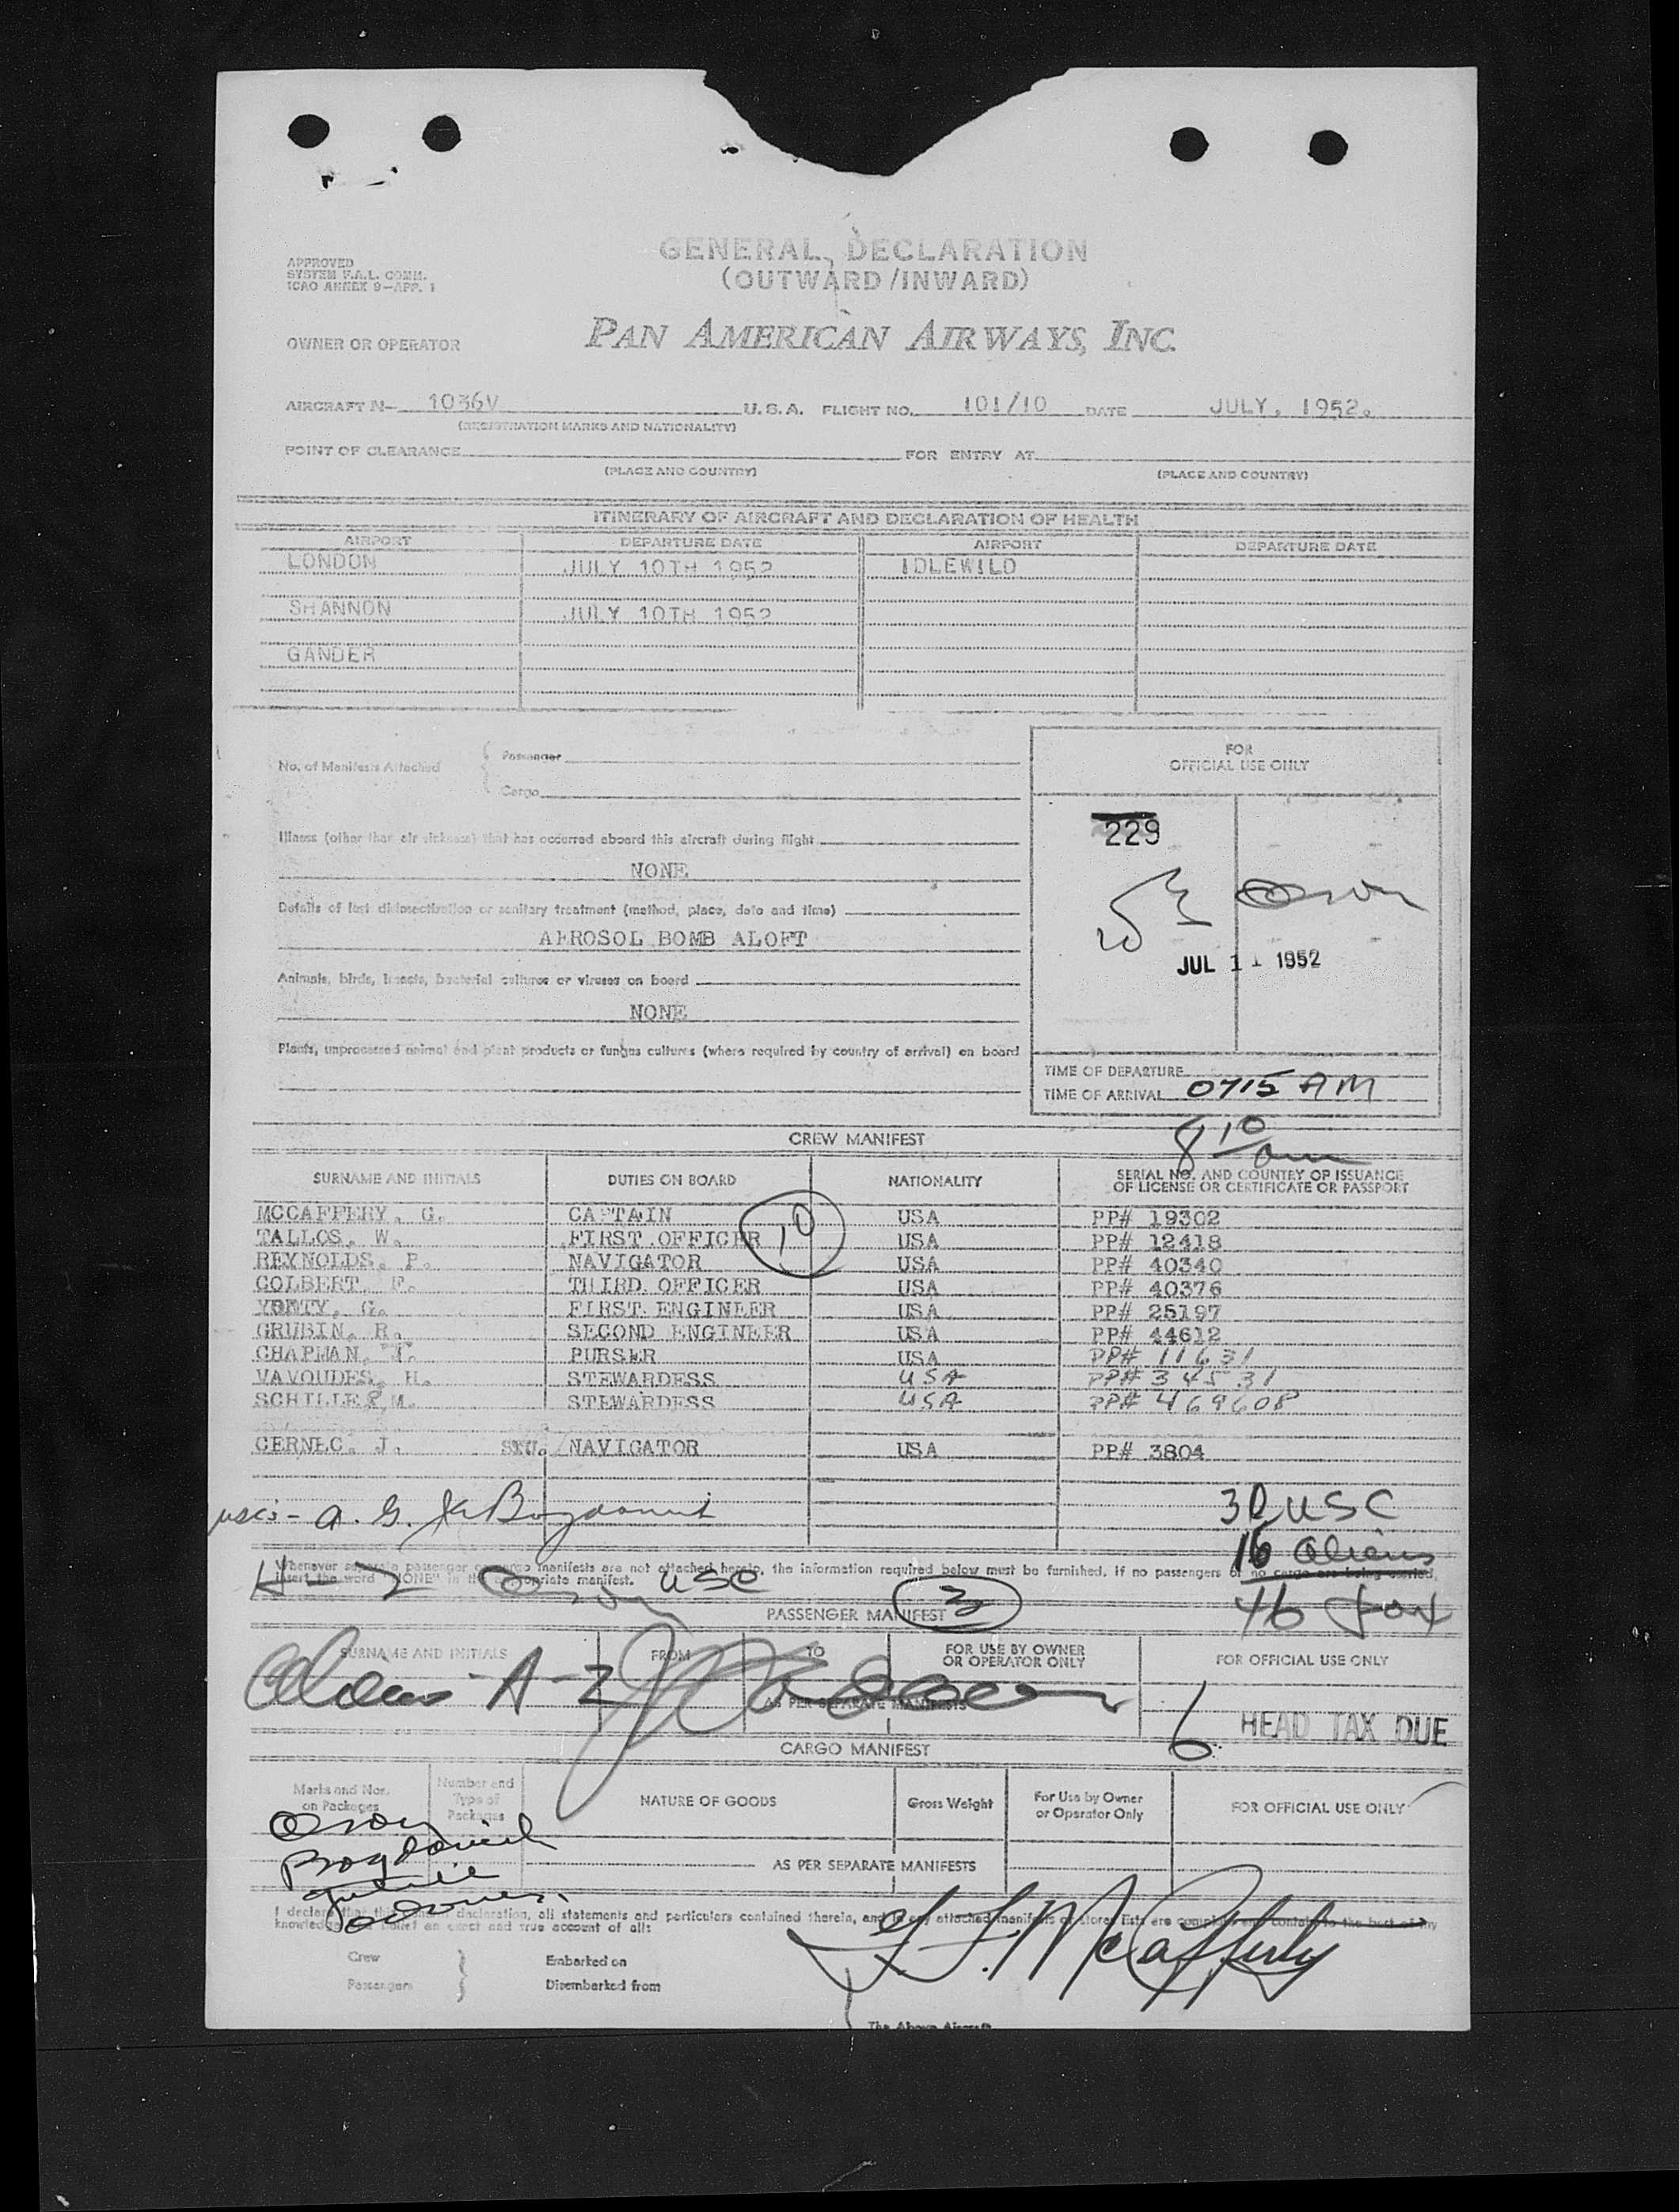 GENERAL DECLARATION
(OUTWARD/INWARD)
APPROVED
SYSTEM F.A.L. COMM.
ICAO ANNEX 9-APP. 1
OWNER OR OPERATOR
PAN AMERICAN AIRWAYS, INC.
AIRCRAFT N- 1036V U.S.A. FLIGHT NO. 101/10 DATE JULY, 1952.
(REGISTRATION MARKS AND NATIONALITY)
POINT OF CLEARANCE FOR ENTRY AT
(PLACE AND COUNTRY) (PLACE AND COUNTRY)
ITINERARY OF AIRCRAFT AND DECLARATION OF HEALTH
AIRPORT DEPARTURE DATE AIRPORT DEPARTURE DATE
LONDON JULY 10TH 1952 IDLEWILD
SHANNON JULY 10TH 1952
GANDER
No. of Manifests Attached { Passenger
Cargo
FOR
OFFICIAL USE ONLY
229
JUL 11 1952
Illness (other than air sickness) that has occurred aboard this aircraft during flight
NONE
Details of last disinsectization or sanitary treatment (method, place, date and time)
AEROSOL BOMB ALOFT
Animals, birds, insects, bacterial cultures or viruses on board
NONE
Plants, unprocessed animal and plant products or fungus cultures (where required by country of arrival) on board
TIME OF DEPARTURE
TIME OF ARRIVAL 0715 AM
8 10 am
CREW MANIFEST
SURNAME AND INITIALS DUTIES ON BOARD NATIONALITY SERIAL NO. AND COUNTRY OF ISSUANCE
OF LICENSE OR CERTIFICATE OR PASSPORT
10
MCCAFFERY, G. CAPTAIN USA PP# 19302
TALLOS, W. FIRST OFFICER USA PP# 12418
REYNOLDS, P. NAVIGATOR USA PP# 40340
COLBERT, F. THIRD OFFICER USA PP# 40376
G. FIRST ENGINEER USA PP# 25197
GRUBIN, R. SECOND ENGINEER USA PP# 44612
CHAPMAN, T. PURSER USA PP# 11631
VAVOUDES, H. STEWARDESS USA PP# 34531
SCHILLER, M. STEWARDESS USA PP# 469608
CERNEC, J. STU. NAVIGATOR USA PP# 3804
30 USC
16 aliens
46
Whenever separate passenger or cargo manifests are not attached hereto, the information required below must be furnished. If no passengers or no cargo are being carried,
insert the word "NONE" in the appropriate manifest.
H-Z USC
PASSENGER MANIFEST 3
SURNAME AND INITIALS FROM TO FOR USE BY OWNER
OR OPERATOR ONLY FOR OFFICIAL USE ONLY
Aliens - A-Z
AS PER SEPARATE MANIFESTS
6 HEAD TAX DUE
CARGO MANIFEST
Marks and Nos.
on Packages Number and
Type of
Packages NATURE OF GOODS Gross Weight For Use by Owner
or Operator Only FOR OFFICIAL USE ONLY
AS PER SEPARATE MANIFESTS
I declare that this declaration, all statements and particulars contained therein, and in any attached manifests or stores lists are complete and contain to the best of my
knowledge and belief an exact and true account of all:
Crew } Embarked on
Passengers Disembarked from
G. F. McCafferty
The Above Aircraft